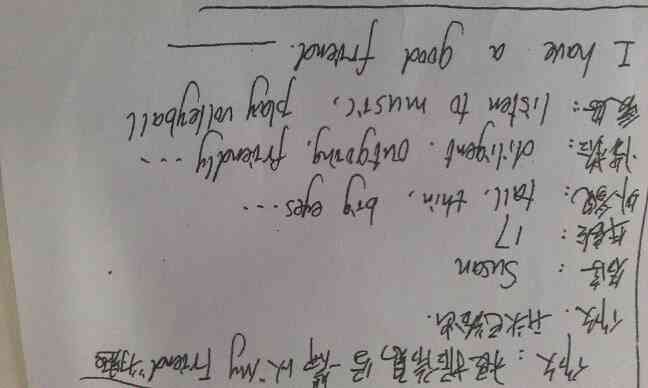 作文：根据信息,写一篇以"My Friend"为题
作文. 开头已给出.
名字： Susan
年龄： 17
外貌： tall. thin. big eyes...
性格： diligent. outgoing. friendly ......
爱好： listen to music. play volleyball
I have a good friend.